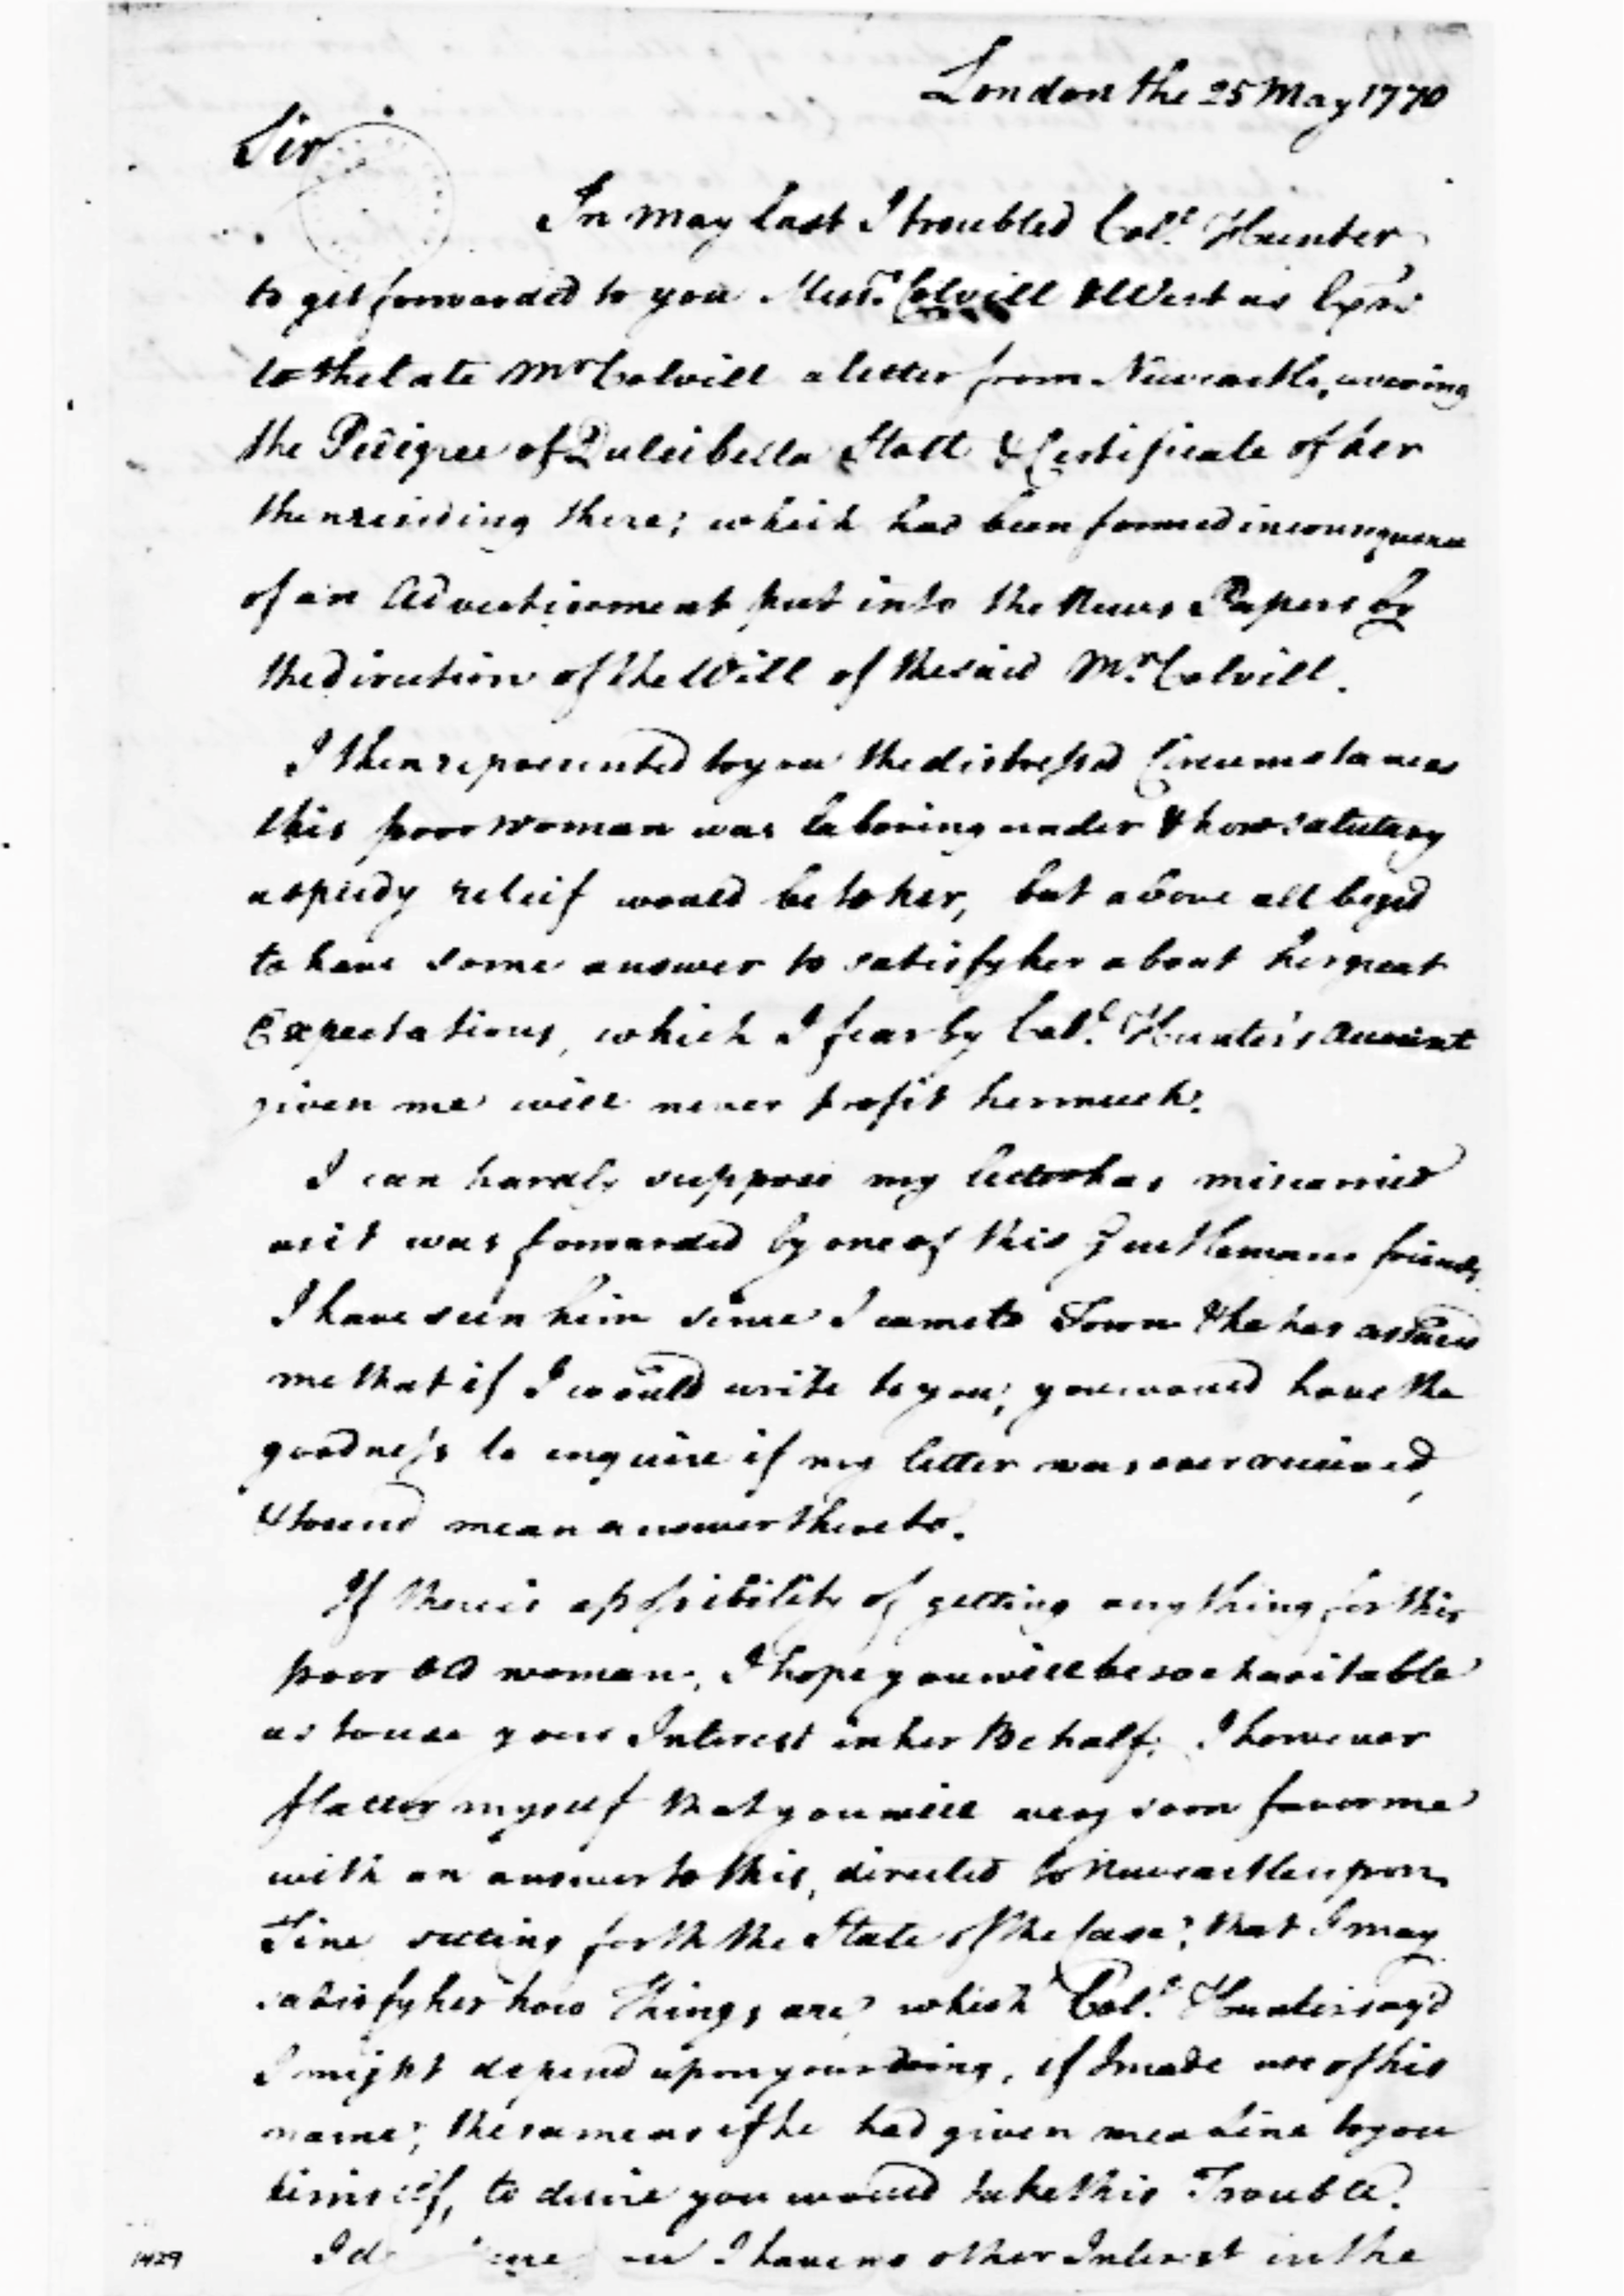 London the 25 May 1770
Sir
In May last I troubled Col.l Hunter,
to get forwarded to you Mess.rs Colvill & West as Exrs
to the late Mr Colvill a letter from Newcastle, covering
the Pedigree of Dulcibella Stott & Certificate of her
then residing there; which had been formed in consequence
of an Advertisement put into the News Papers by
the Direction of the Will of the said Mr. Colvill.
I then represented to you the distressed Circumstances
this poor woman was laboring under & how salutary
a speedy releif would be to her, but above all beged
to have some answer to satisfy her about her great
Expectations, which I fear by Col.l Hunter's account
given me will never profit her much.
I can hardly suppose my letter has miscarried
as it was forwarded by one of this Gentlemans friends,
I have seen him since I came to Town & he has assured
me that if I would write to you; you would have the
goodness to enquire if my letter was ever received,
& to send me an answer thereto.
If there is a possibility of getting any thing for this
poor old woman, I hope you will be so charitable
as to use your Interest in her Behalf. I however
flatter myself that you will very soon favor me
with an answer to this, directed to Newcastle upon
Tine setting forth the State of the Case; that I may
satisfy her how Things are; which Col.l Hunter say'd
I might depend upon your doing, if I made use of his
name; the same as if he had given me a Line to you
himself, to desire you would take this Trouble.
I have no other Interest in the
1429